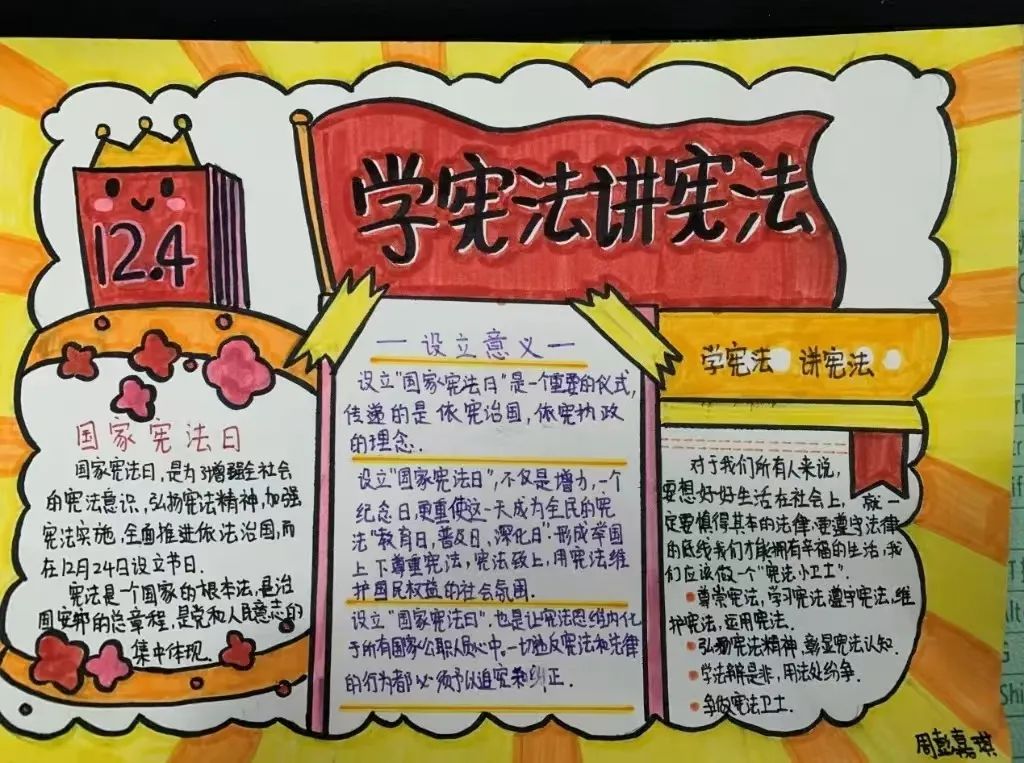 学宪法讲宪法
12.4
国家宪法日
国家宪法日,是为了增强全社会
的宪法意识,弘扬宪法精神,加强
宪法实施,全面推进依法治国,而
在12月24日设立节日.
宪法是一个国家的根本法,是治
国安邦的总章程,是党和人民意志的
集中体现.
一设立意义一
设立"国家宪法日"是一个重要的仪式,
传递的是依宪治国,依宪执政
的理念.
设立"国家宪法日",不仅是增加,一个
纪念日,更重使这一天成为全民的宪
法"教育日,普及日,深化日".形成举国
上下尊重宪法,宪法致上,用宪法维
护国民权益的社会氛围.
设立"国家宪法日",也是让宪法思维内化
于所有国家公职人员心中,一切违反宪法和法律
的行为都必须予以追究和纠正.
学宪法 讲宪法
对于我们所有人来说,
要想好好生活在社会上,就一
定要慎得其本的法律,要遵守法律
的底线我们才能拥有幸福的生活,我
们应该做一个"宪法小卫士".
尊崇宪法,学习宪法,遵守宪法,维
护宪法,应用宪法.
弘扬宪法精神,彰显宪法认知.
学法辨是非,用法处纷争.
争做宪法卫士.
周彭嘉琪